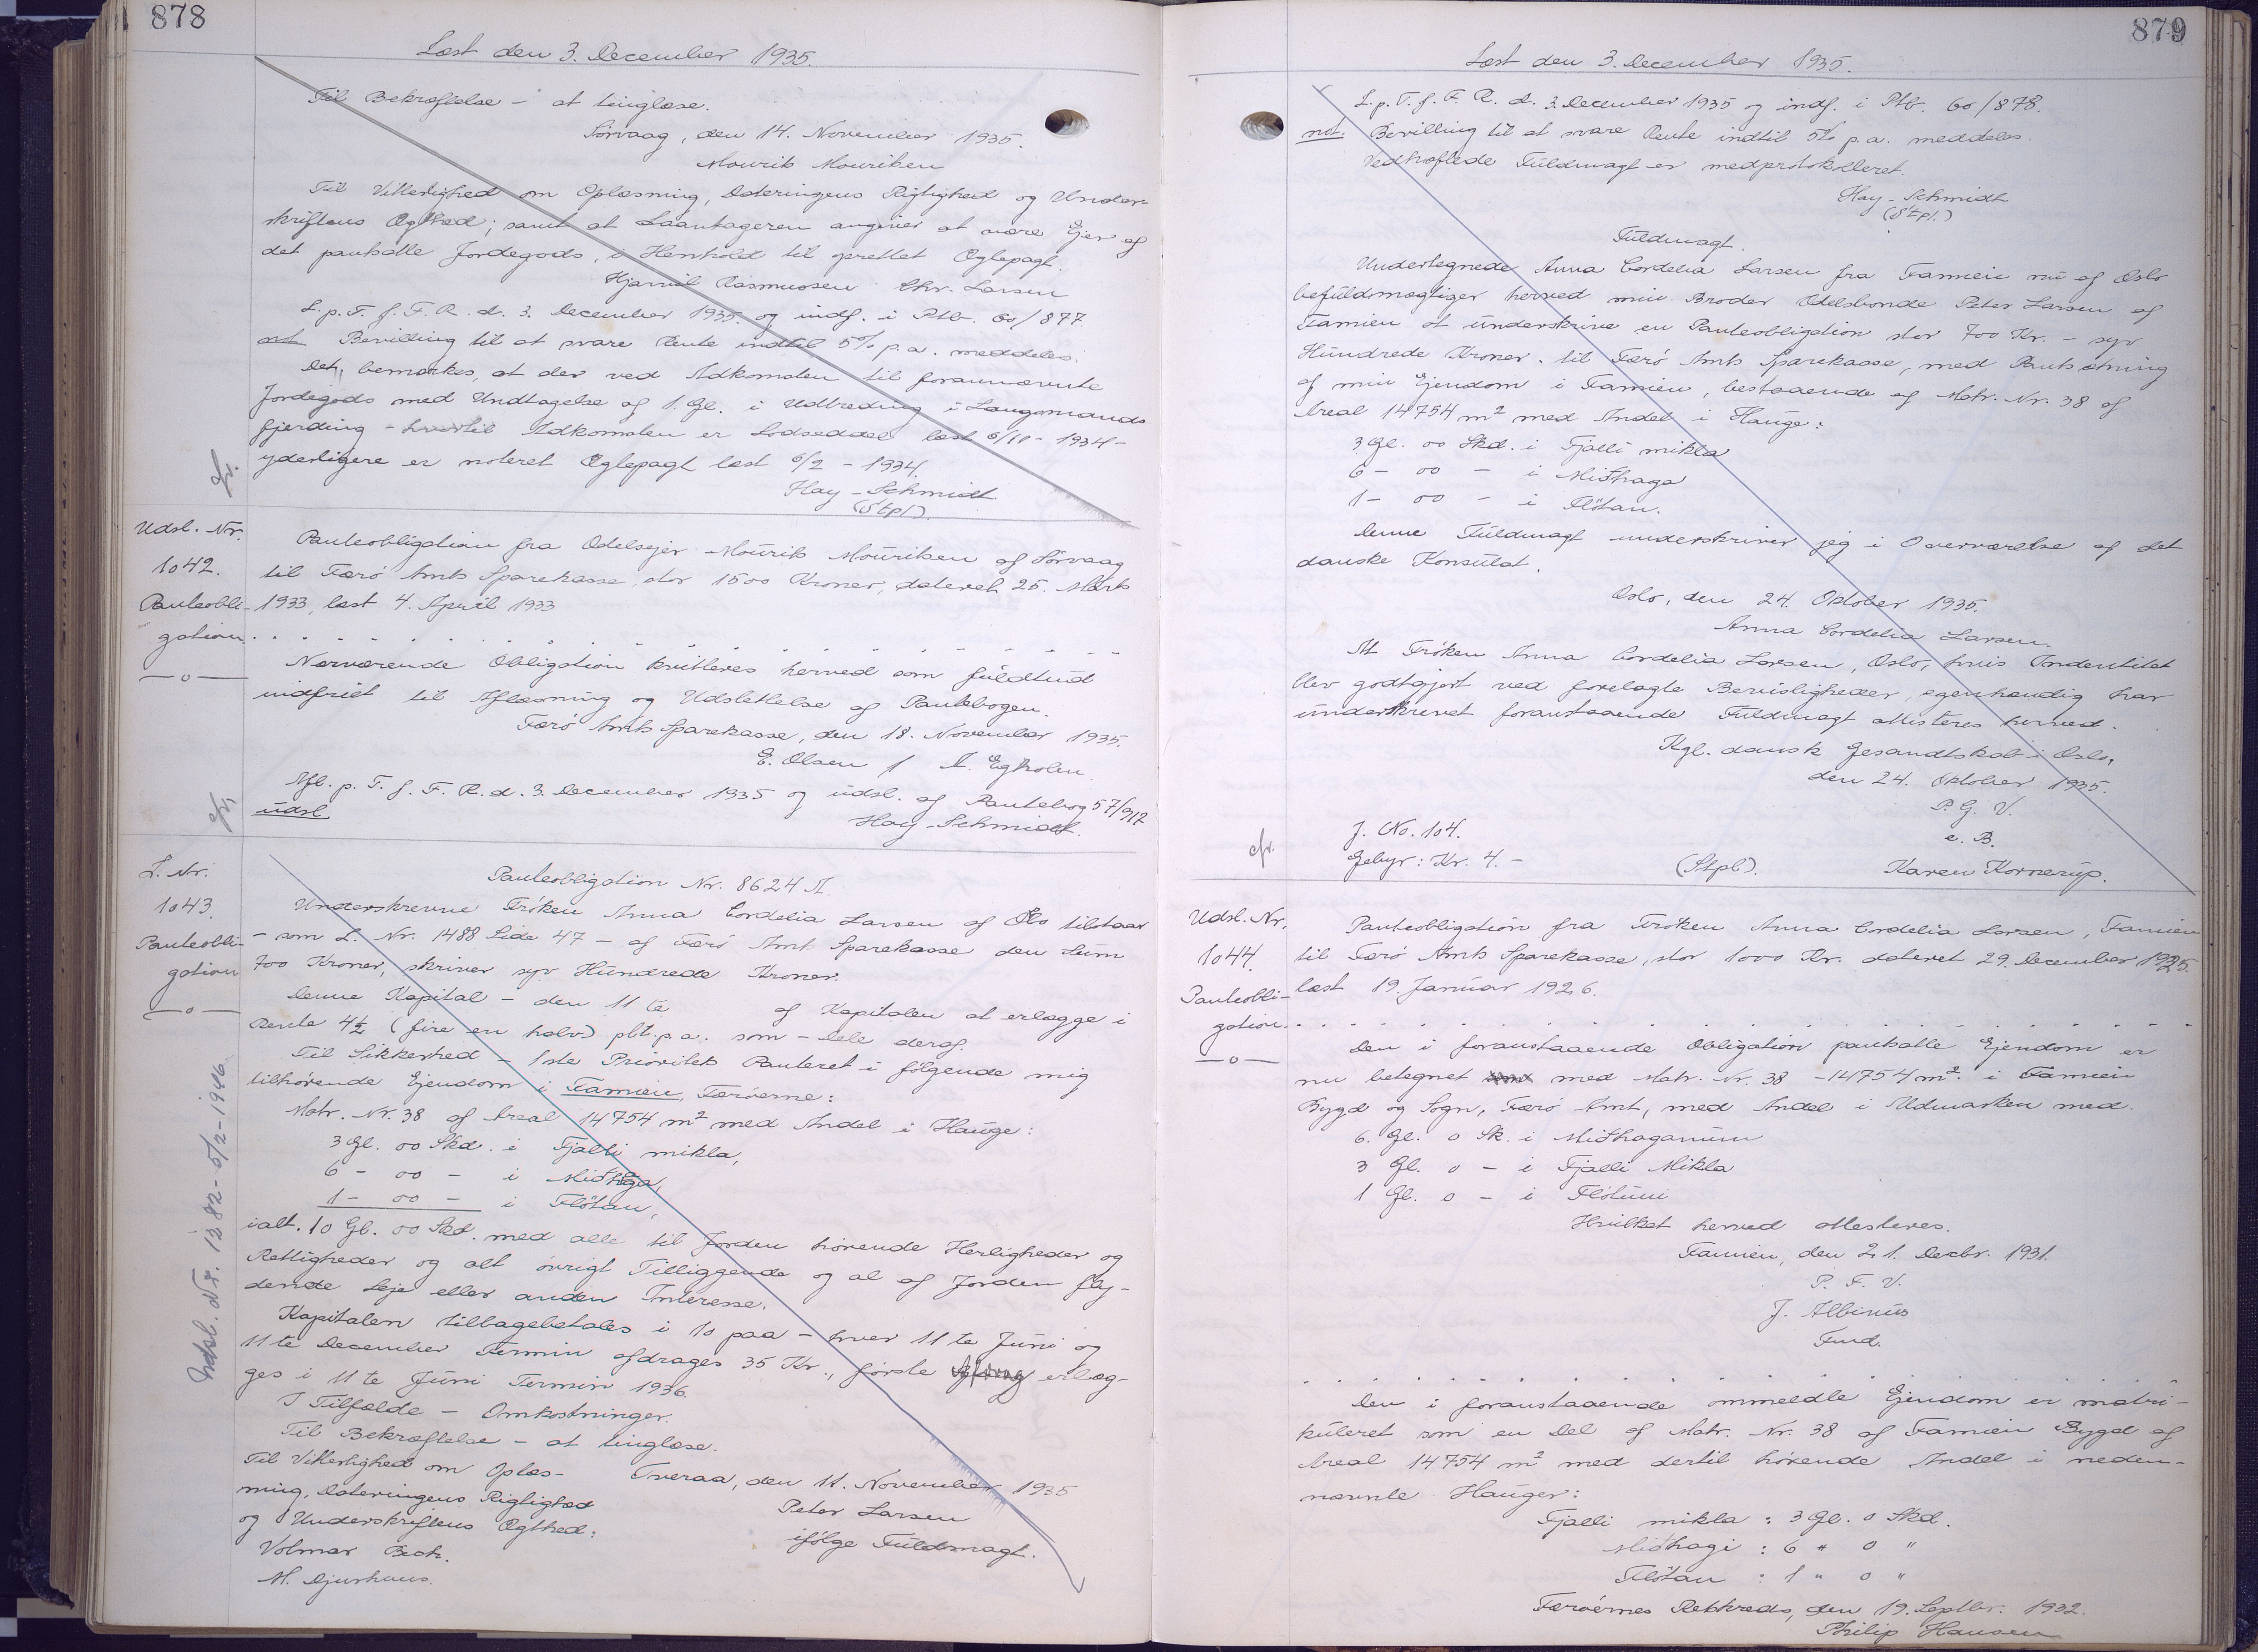 878
Læst den 3. December 1935.
Til Bekræftelse - at tinglæse.
Sörvaag, den 14. November 1935.
Mourits Mouritsen
Til Vitterlighed om Oplæsning, Dateringens Rigtighed og Under-
skriftens Ægthed; samt at Laantageren angiver at være Ejer af
det pantsatte Jordegods, i Henhold til oprettet Ægtepagt.
Hjarnil Rasmussen Chr. Larsen
L. p. T. f. F. R. d. 3. December 1935. og indf. i Ptb. 60/877
not. Bevilling til at svare Rente indtil 5% p.a. meddeles.
Det bemærkes, at der ved Adkomsten til forannævnte
Jordegods med Undtagelse af 1. Gl. i Udbreding i Laugomands
fjerding - hvortil Adkomsten er Lodseddel læst 6/11 - 1934 -
yderligere er noteret Ægtepagt læst 6/2 - 1934.
Hay-Schmidt
(Stpl).
Udsl. Nr.
1042.
Panteobli-
gation
—o—
Panteobligation fra Odelsejer Mourits Mouritsen af Sörvaag
til Færö Amts Sparekasse, stor 1500 Kroner, dateret 25. Marts
1933, læst 4. April 1933
Nærværende Obligation kvitteres herved som fuldtud
indfriet til Aflæsning og Udslettelse af Pantebogen.
Færö Amts Sparekasse, den 18. November 1935.
E. Olsen / A. Egholm
Afl. p. T. f. F. R. d. 3. December 1935 og udsl. af Pantebog 57/912
udsl. Hay-Schmidt.
L. Nr.
1043.
Panteobli-
gation
—o—
Udsl. Nr. 1382 - 5/2 - 1946.
Panteobligation Nr. 8624 A.
Underskrevne Fröken Anna Cordelia Larsen af Oslo tilstaar
- som L. Nr. 1488 Side 47 - af Færö Amt Sparekasse den Sum
700 Kroner, skriver syv Hundrede Kroner.
Denne Kapital - den 11 te af Kapitalen at erlægge i
Rente 4½ (fire en halv) pct. p.a. som - Dele deraf.
Til Sikkerhed - 1ste Prioritets Panteret i fölgende mig
tilhörende Ejendom i Famien, Færöerne:
Matr. Nr. 38 af Areal 14754 m² med Andel i Hauge:
3 Gl. 00 Skd. i Fjalli mikla,
6 - 00 - i Miðhaga,
1 - 00 - i Flötan,
ialt. 10 Gl. 00 Skd. med alle til Jorden hörende Herligheder og
Rettigheder og alt övrigt Tilliggende og al af Jorden fly-
dende Leje eller anden Interesse.
Kapitalen tilbagebetales i 10 paa - hver 11 te Juni og
11 te December Termin afdrages 35 Kr., förste Afdrag erlæg-
ges i 11 te Juni Termin 1936.
I Tilfælde - Omkostninger.
Til Bekræftelse - at tinglæse.
Til Vitterlighed om Oplæs- Tveraa, den 11. November 1935
ning, Dateringens Rigtighed Peter Larsen
og Underskriftens Ægthed: ifölge Fuldmagt.
Volmar Bech.
M. Djurhuus.
879
Læst den 3. December 1935.
L. p. T. f. F. R. d. 3. December 1935 og indf. i Ptb. 60/878.
not. Bevilling til at svare Rente indtil 5% p.a. meddeles.
Vedhæftede Fuldmagt er medprotokolleret.
Hay-Schmidt
(Stpl.)
Fuldmagt.
Undertegnede Anna Cordelia Larsen fra Famien nu af Oslo
befuldmægtiger herved min Broder Odelsbonde Peter Larsen af
Famien at underskrive en Panteobligation stor 700 Kr. - syv
Hundrede Kroner. til Færö Amts Sparekasse, med Pantsætning
af min Ejendom i Famien, bestaaende af Matr. Nr. 38 af
Areal 14754 m² med Andel i Hauge:
3 Gl. 00 Skd. i Fjalli mikla
6 - 00 - i Miðhaga
1 - 00 - i Flötan.
Denne Fuldmagt underskriver jeg i Overværelse af det
danske Konsulat.
Oslo, den 24. Oktober 1935.
Anna Cordelia Larsen.
At Fröken Anna Cordelia Larsen, Oslo, hvis Indentitet
blev godtgjort ved forelagte Bevisligheder, egenhændig har
underskrevet foranstaaende Fuldmagt attesteres herved.
Kgl. dansk Gesandtskab i Oslo,
den 24. Oktober 1935.
P. G. V.
e. B.
J. No. 104.
Gebyr: Kr. 4. - (Stpl). Karen Kornerup.
Udsl. Nr.
1044.
Panteobli-
gation
—o—
Panteobligation fra Fröken Anna Cordelia Larsen, Famien
til Færö Amts Sparekasse, stor 1000 Kr. dateret 29. December 1925.
læst 19. Januar 1926.
Den i foranstaaende Obligation pantsatte Ejendom er
nu betegnet med Matr. Nr. 38 - 14754 m² i Famien
Bygd og Sogn, Færö Amt, med Andel i Udmarken med.
6. Gl. 0 Sk. i Miðhaganum
3 Gl. 0 - i Fjalli Mikla
1 Gl. 0 - i Flötuni
Hvilket herved attesteres.
Famien, den 21. Decbr. 1931.
P. F. V.
J. Albinus
Fmd.
Den i foranstaaende ommeldte Ejendom er matri-
kuleret som en Del af Matr. Nr. 38 af Famien Bygd af
Areal 14754 m² med dertil hörende Andel i neden-
nævnte Hauger:
Fjalli mikla : 3 Gl. 0 Skd.
Miðhagi : 6 " 0 "
Flötan : 1 " 0 "
Færöernes Retskreds, den 19. Septbr. 1932.
Philip Hansen